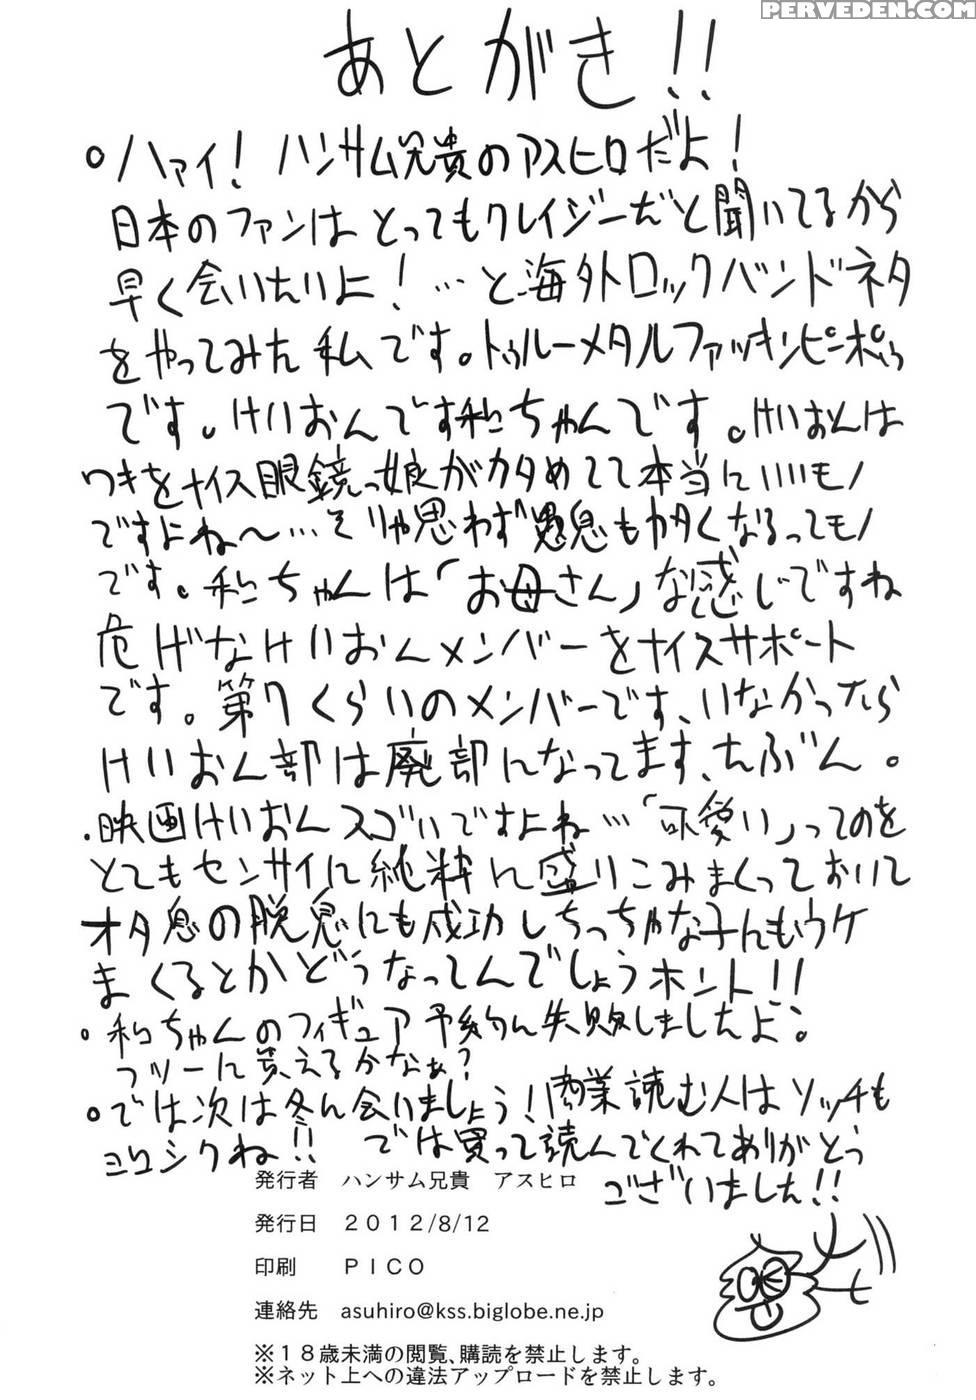 PERVEDEN.COM
あとがき!!
ハァイ! ハンサム兄貴のアスヒロだよ!
日本のファンは とってもクレイジーだと聞いてるから
早く会いたいよ! …と海外ロックバンドネタ
をやってみた私です。トゥルーメタルファッキン
です。けいおんです和ちゃんです。けいおんは
ワキをナイス眼鏡っ娘がカタめてて本当にいいモノ
ですよね〜…そりゃ思わず愚息もカタくなるってモノ
です。和ちゃんは「お母さん」な感じですね
危げなけいおんメンバーをナイスサポート
です。第7くらいのメンバーです、いなかったら
けいおん部は廃部になってます、たぶん。
・映画けいおんスゴいですよね…「可愛い」ってのを
とてもセンサイに純粋に盛りこみまくっておいて
オタ息の脱臭にも成功しちっちゃな子にもウケ
まくるとかどうなってんでしょうホント!!
和ちゃんのフィギュア予約に失敗しましたよ。
フツーに買えるかなぁ?
では次は冬に会いましょう! 商業読む人はソッチも
ヨロシクね!! では買って読んでくれてありがとう
ございました!!
発行者 ハンサム兄貴 アスヒロ
発行日 2012/8/12
印刷 PICO
連絡先 asuhiro@kss.biglobe.ne.jp
※18歳未満の閲覧、購読を禁止します。
※ネット上への違法アップロードを禁止します。